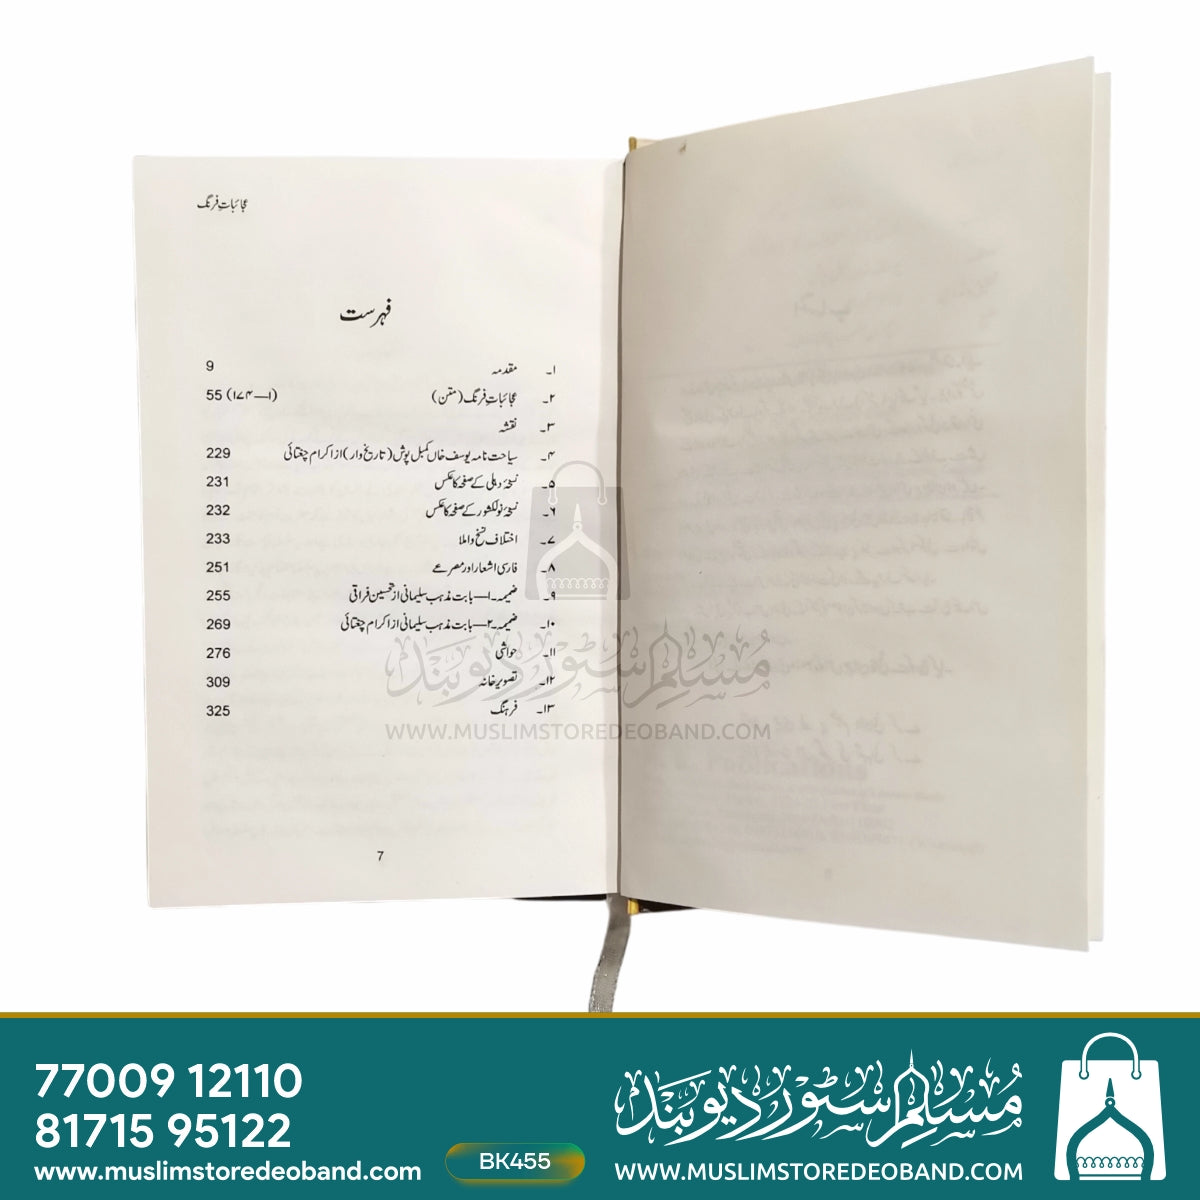 عجائباتِ فرنگ
فہرست
۱۔ مقدمہ 9
۲۔ عجائباتِ فرنگ (متن) (۱—۱۷۴) 55
۳۔ نقشہ
۴۔ سیاحت نامہ یوسف خاں کمبل پوش (تاریخ وار) از اکرام چغتائی 229
۵۔ نسخۂ دہلی کے صفحہ کا عکس 231
۶۔ نسخۂ نولکشور کے صفحہ کا عکس 232
۷۔ اختلاف نسخ و املا 233
۸۔ فارسی اشعار اور مصرعے 251
۹۔ ضمیمہ۔۱— بابت مذہب سلیمانی از تحسین فراقی 255
۱۰۔ ضمیمہ۔۲— بابت مذہب سلیمانی از اکرام چغتائی 269
۱۱۔ حواشی 276
۱۲۔ تصویر خانہ 309
۱۳۔ فرہنگ 325
7
مسلم سٹور دیوبند
WWW.MUSLIMSTOREDEOBAND.COM
77009 12110
81715 95122
www.muslimstoredeoband.com
BK455
مسلم سٹور دیوبند
WWW.MUSLIMSTOREDEOBAND.COM